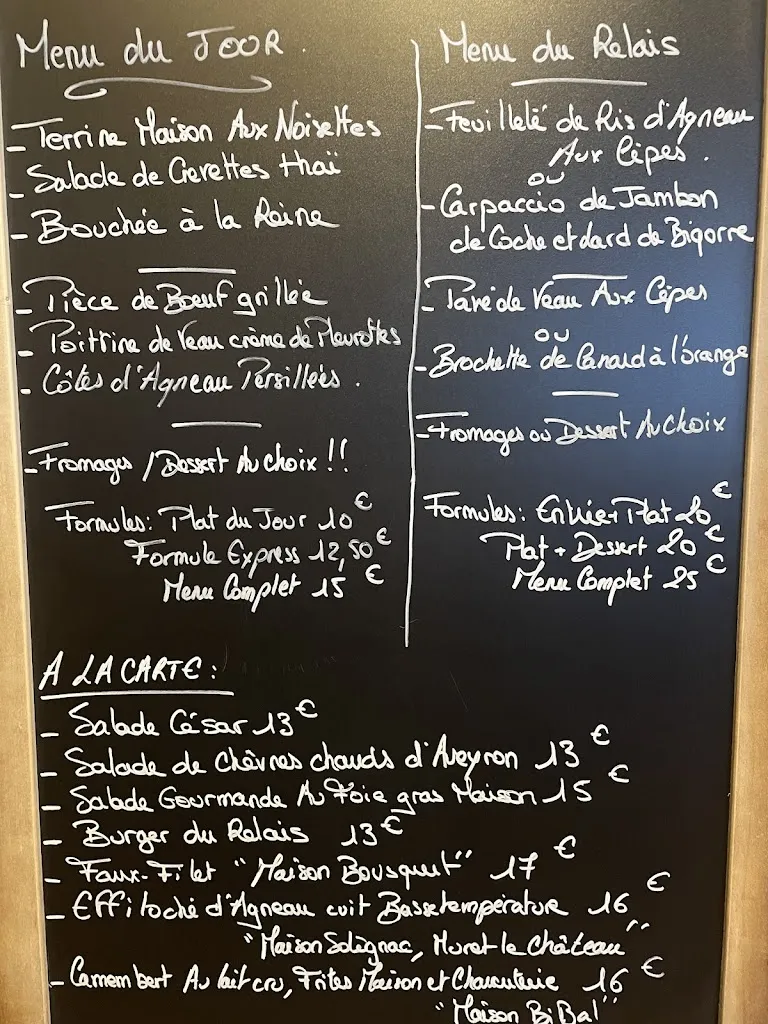 Menu du JOUR.
- Terrine Maison Aux Noisettes
- Salade de Crevettes thaï
- Bouchée à la Reine
- Pièce de Boeuf grillée
- Poitrine de Veau crème de Pleurottes
- Côtes d'Agneau Persillées.
- Fromages / Dessert Au choix !!
Formules: Plat du Jour 10€
Formule Express 12,50€
Menu Complet 15€
Menu du Relais
- Feuilleté de Ris d'Agneau
Aux Cêpes.
ou
- Carpaccio de Jambon
de Coche et dard de Bigorre
- Pavé de Veau Aux Cêpes
ou
- Brochette de Canard à l'orange
- Fromages ou Dessert Au choix
Formules: Entrée + Plat 20€
Plat + Dessert 20€
Menu Complet 25€
A LA CARTE:
- Salade César 13€
- Salade de Chèvres chauds d'Aveyron 13€
- Salade Gourmande Au Foie gras Maison 15€
- Burger du Relais 13€
- Faux-Filet "Maison Bousquet" 17€
- Effiloché d'Agneau cuit Basse température 16€
"Maison Solignac, Muret le Château"
- Camembert Au lait cru, Frites Maison et Charcuterie 16€
"Maison BiBal"